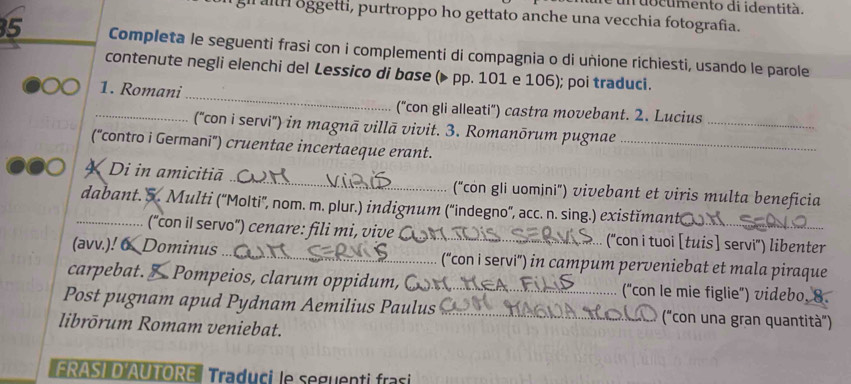 oggetti, purtroppo ho gettato anche una vecchia fotografia.
documento di identità.
35 Completa le seguenti frasi con i complementi di compagnia o di unione richiesti, usando le parole
contenute negli elenchi del Lessico di base (▶ pp. 101 e 106); poi traduci.
1. Romani ____ ("con gli alleati") castra movebant. 2. Lucius ____
____ ("con i servi") in magnā villā vivit. 3. Romanōrum pugnae ____
("contro i Germani") cruentae incertaeque erant.
4. Di in amicitiā CUM VIRIS ("con gli uomini") vivebant et viris multa beneficia
dabant. 5. Multi ("Molti", nom. m. plur.) indignum ("indegno", acc. n. sing.) existimant CUM SERVO
____ ("con il servo") cenare: fili mi, vive CUM TUIS SERVIS ("con i tuoi [tuis] servi") libenter
(avv.)! 6. Dominus CUM SERVIS ("con i servi") in campum perveniebat et mala piraque
carpebat. Pompeios, clarum oppidum, CUM MEA FILIS ("con le mie figlie") videbo. 8.
Post pugnam apud Pydnam Aemilius Paulus CUM MAGNA ("con una gran quantità")
librōrum Romam veniebat.
FRASI D'AUTORE Traduci le seguenti frasi